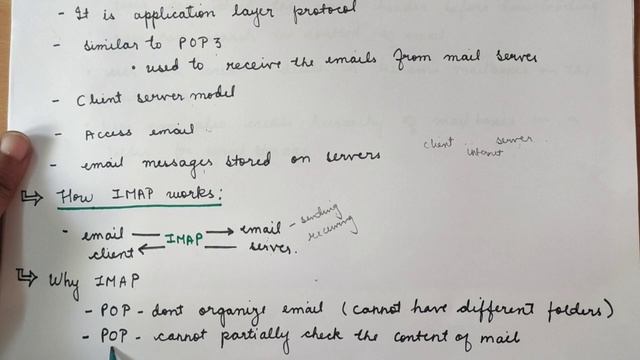 - It is application layer protocol
- similar to POP3
• used to receive the emails from mail server
- Client server model
- Access email.
- email messages stored on servers
client server
internet
How IMAP works:
- email — IMAP → email - sending
client ← — server. receiving
Why IMAP
- POP - dont organize email (cannot have different folders)
- POP - cannot partially check the content of mail